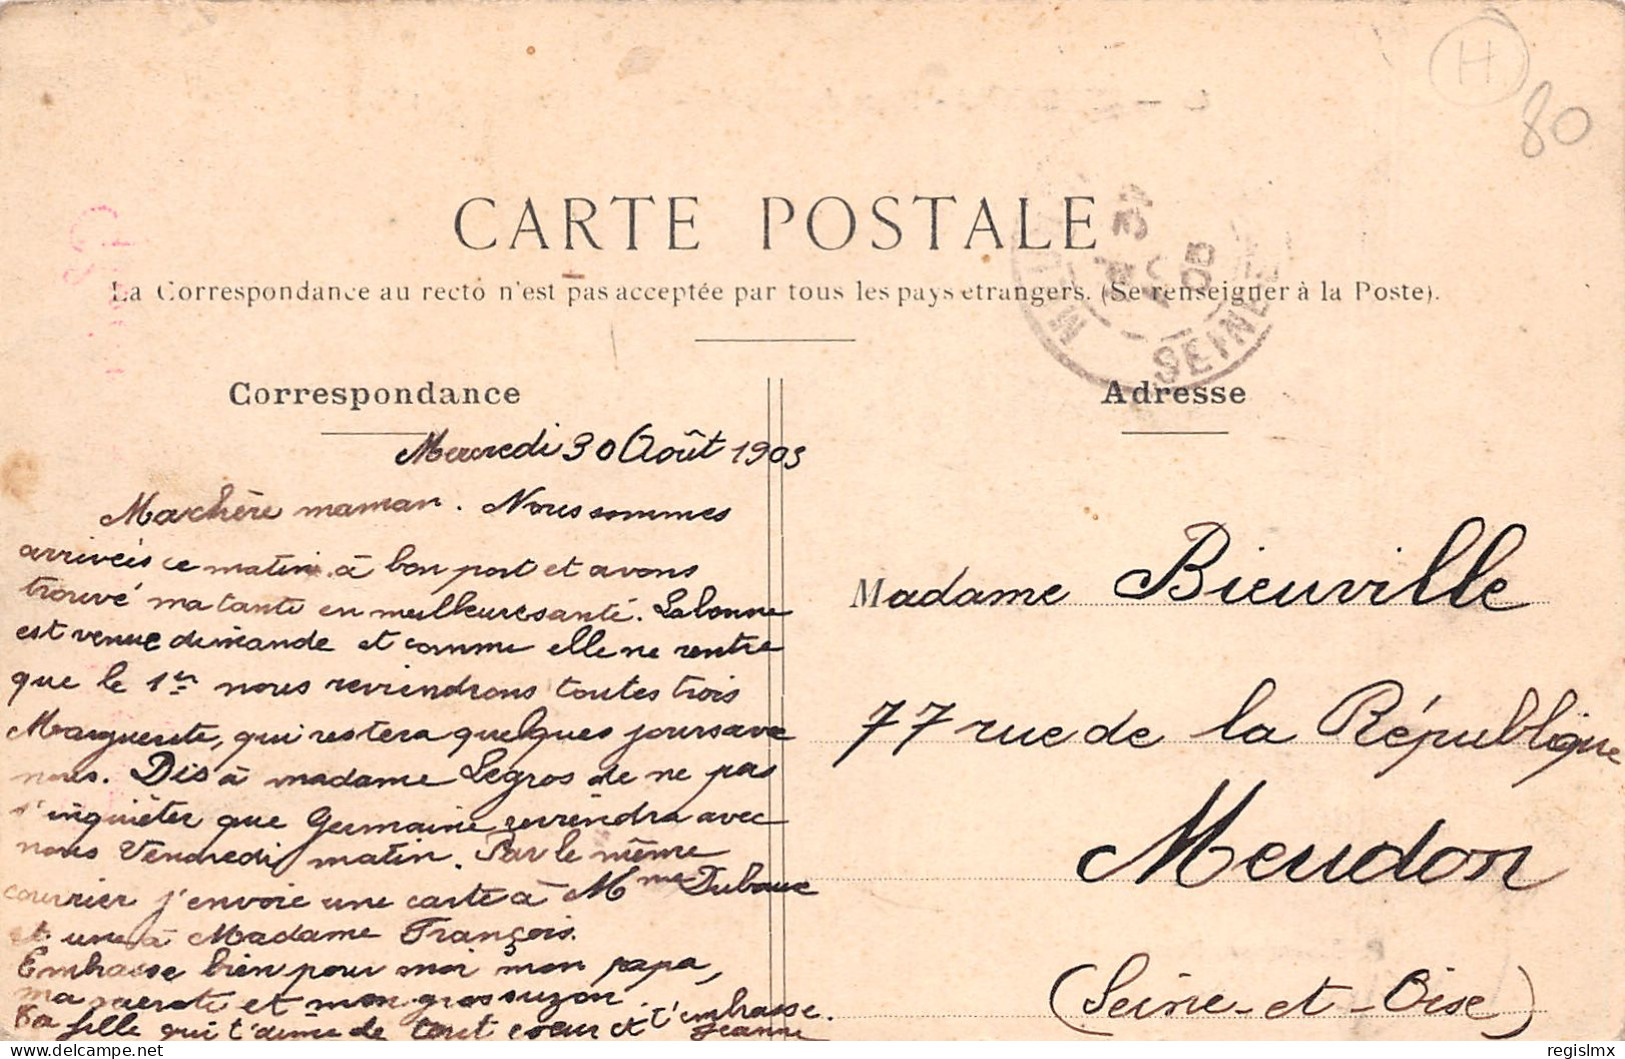 H
80
CARTE POSTALE
La Correspondance au recto n'est pas acceptée par tous les pays étrangers. (Se renseigner à la Poste).
SEINE
Correspondance
Mercredi 30 Août 1905
Ma chère maman. Nous sommes
arrivées ce matin à bon port et avons
trouvé ma tante en meilleure santé. La bonne
est venue dimande et comme elle ne rentre
que le 1er nous reviendrons toutes trois
Marguerite, qui restera quelques jours avec
nous. Dis à madame Legros de ne pas
s'inquiéter que Germaine reviendra avec
nous Vendredi matin. Par le même
courrier j'envoie une carte à Mme Dubouc
et une à Madame François.
Embrasse bien pour moi mon papa,
ma et mon gros suzon.
Ta fille qui t'aime de tout cœur et t'embrasse.
Jeanne
Adresse
Madame Bieuville
77 rue de la République
Meudon
(Seine-et-Oise)
regislmx
delcampe.net